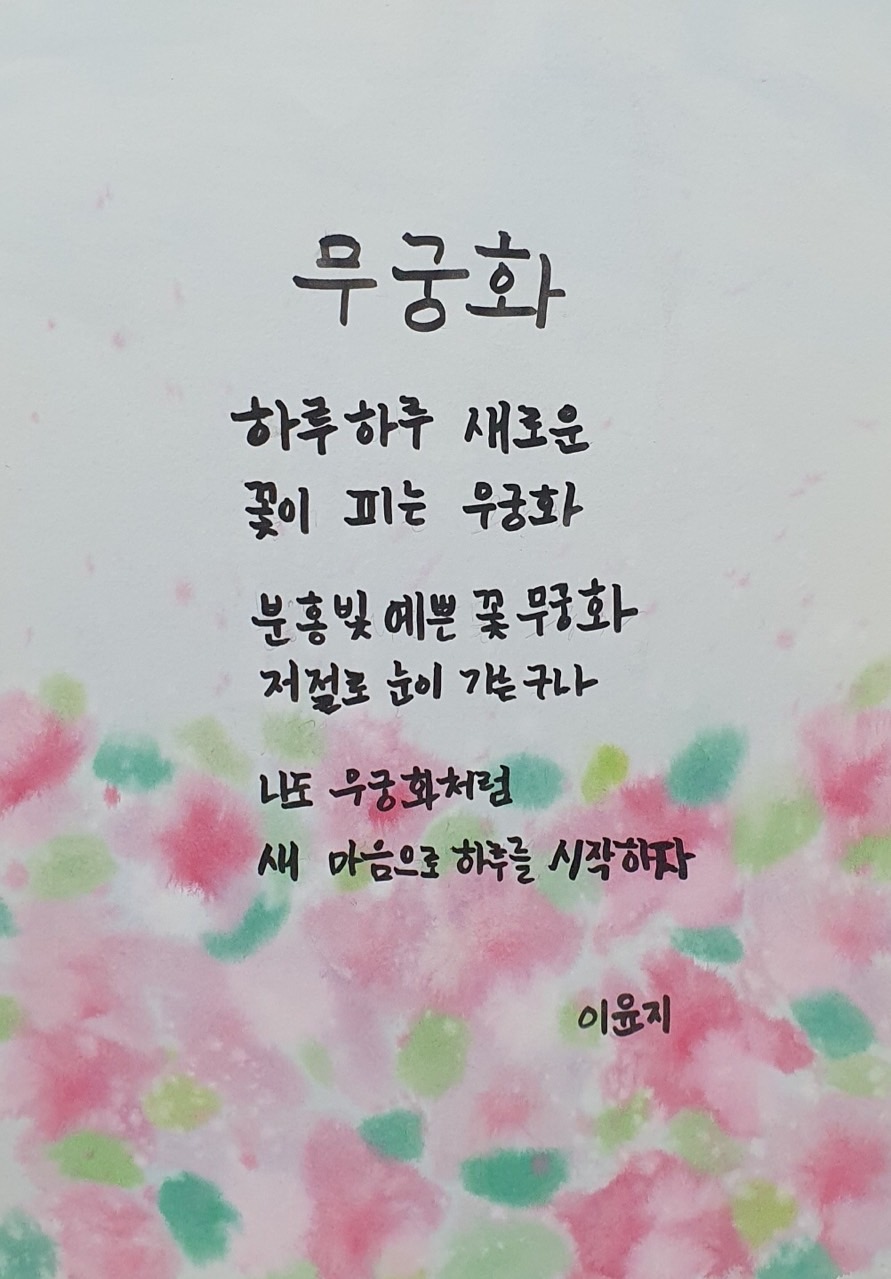 무궁화
하루하루 새로운
꽃이 피는 무궁화
분홍빛 예쁜 꽃 무궁화
저절로 눈이 가는구나
나도 무궁화처럼
새 마음으로 하루를 시작하자
이윤지